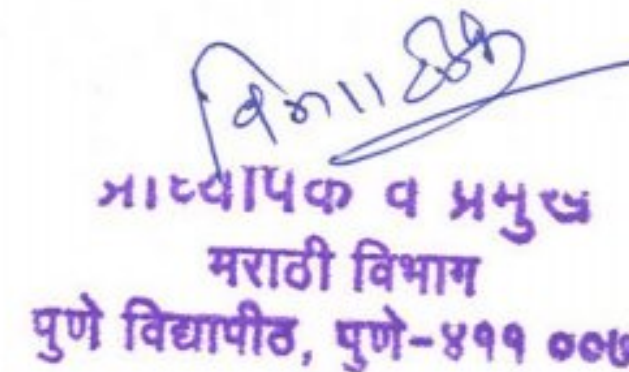 प्राध्यापक व प्रमुख
मराठी विभाग
पुणे विद्यापीठ, पुणे-४११ ००७